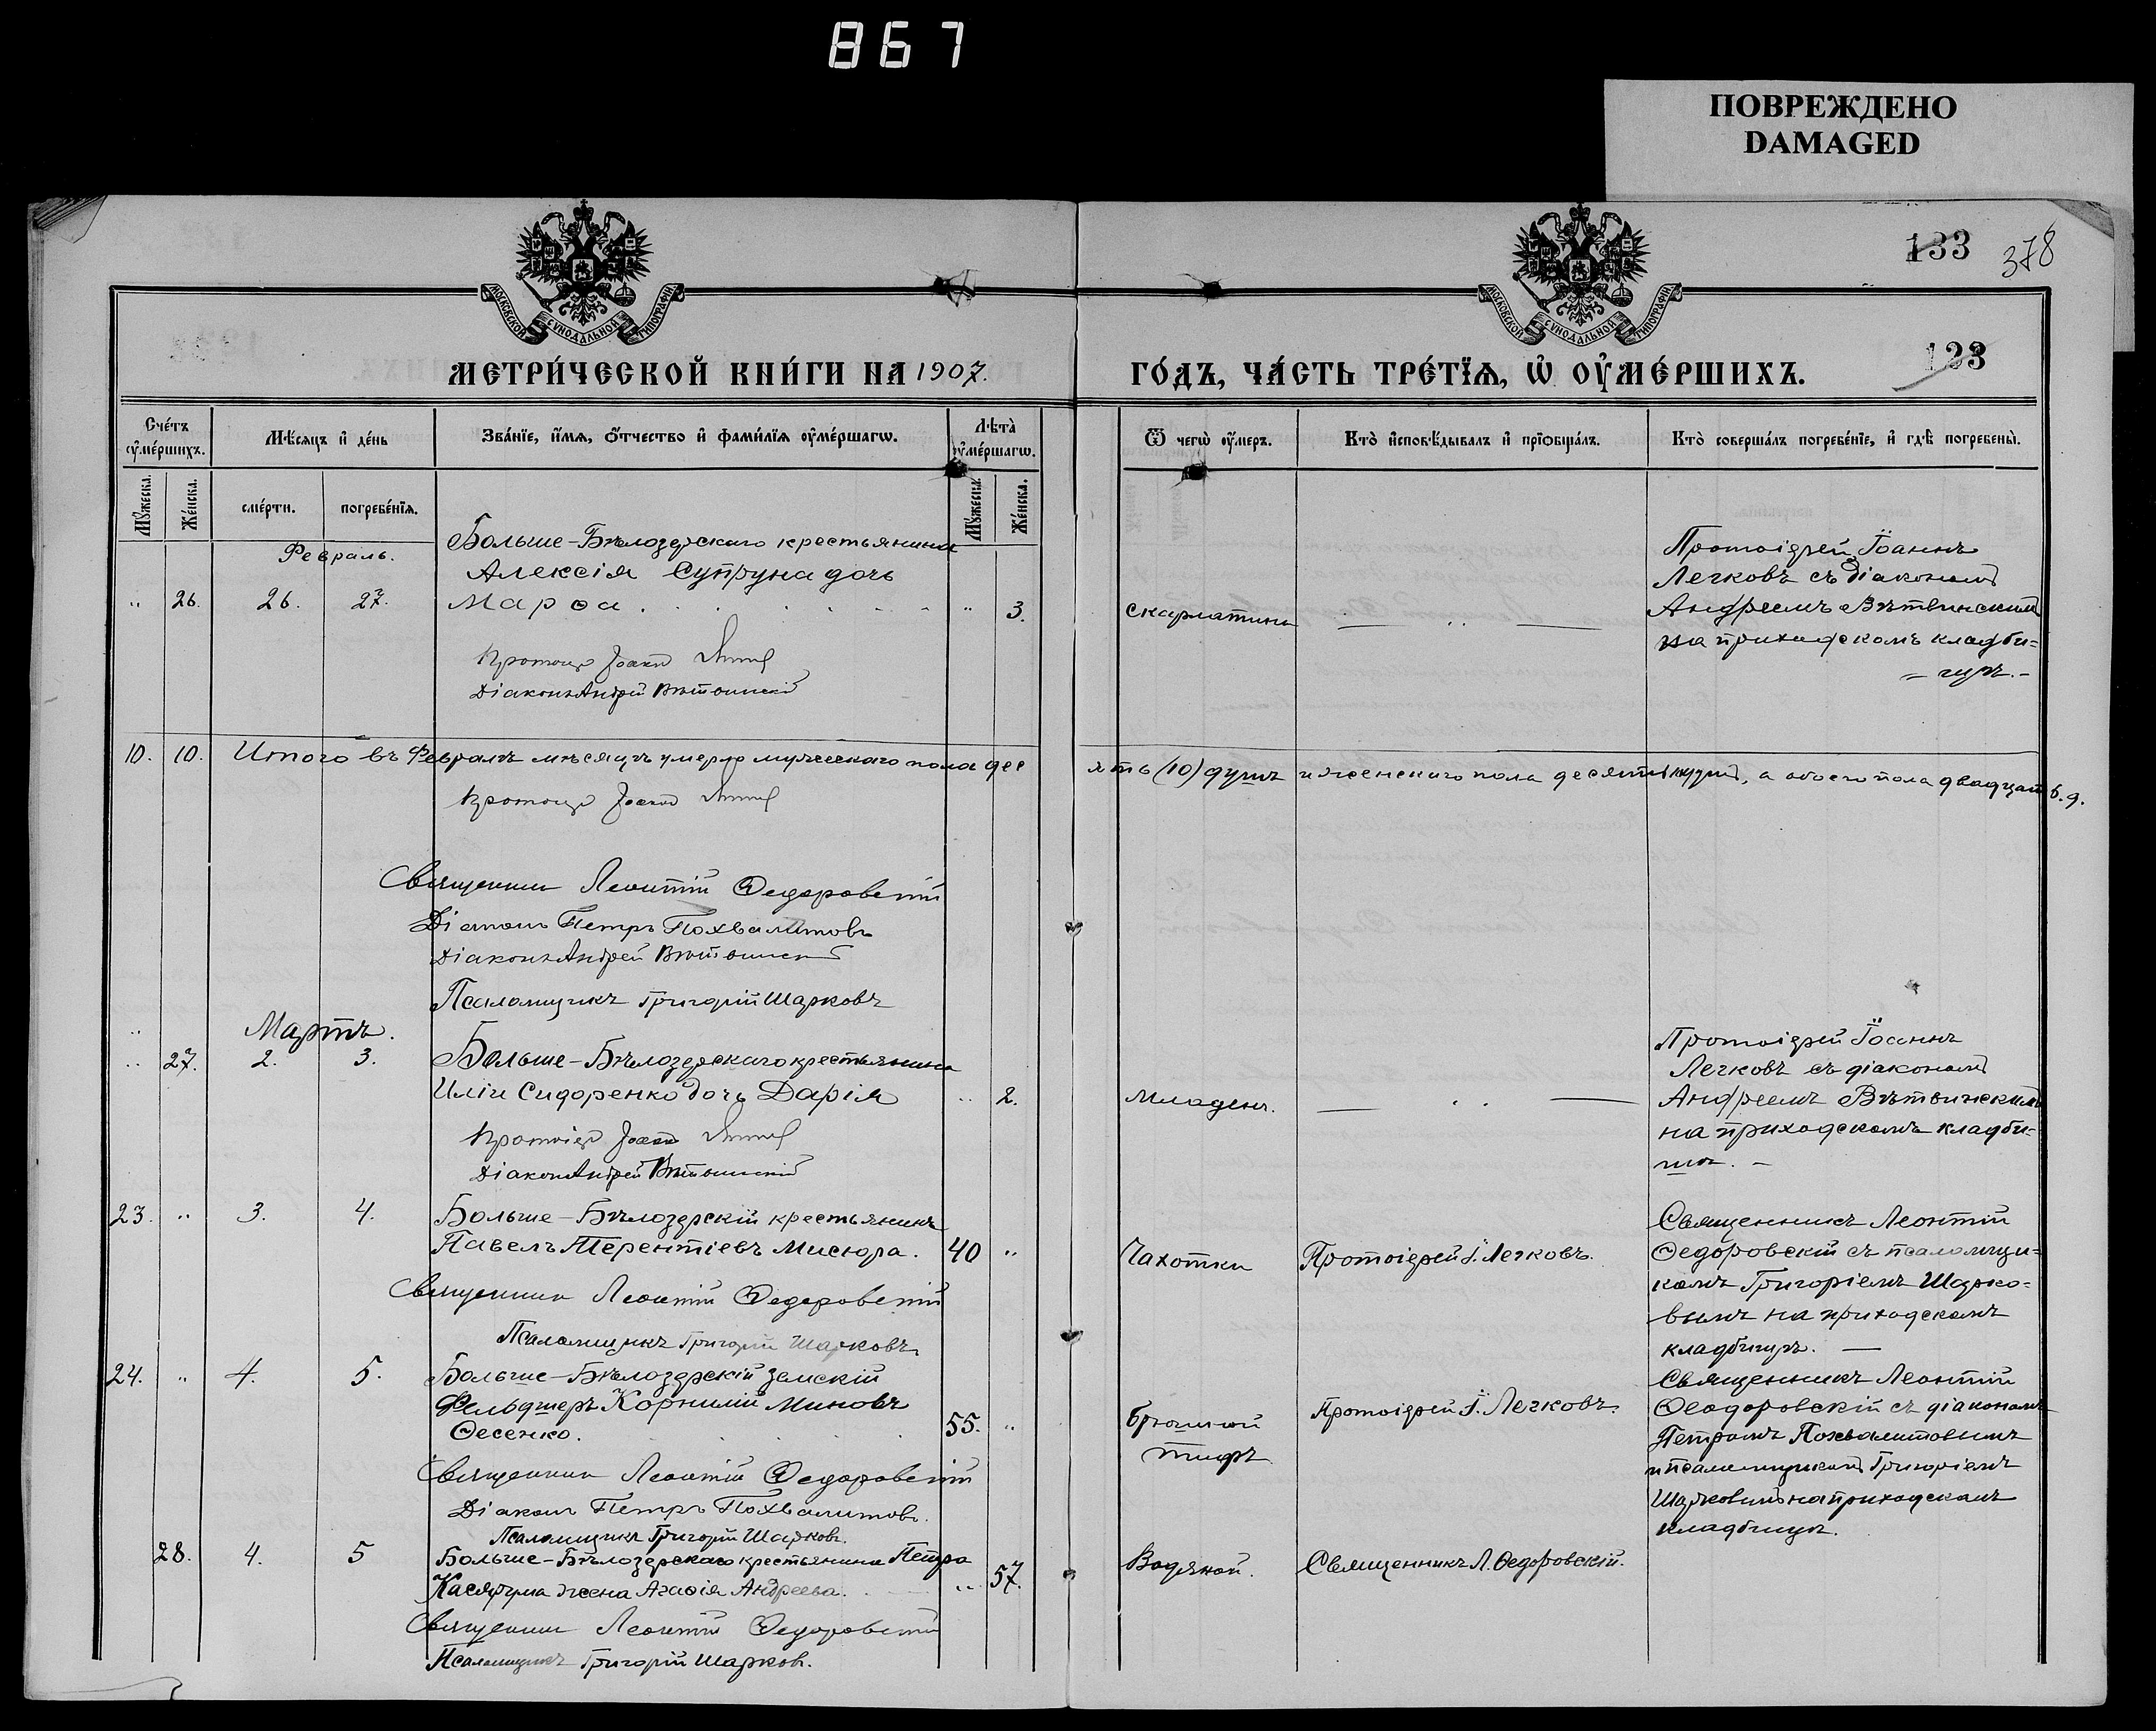 867
ПОВРЕЖДЕНО
DAMAGED
133 378
МОСКОВСКОЙ СѴНОДАЛЬНОЙ ТИПОГРАФІИ
МОСКОВСКОЙ СѴНОДАЛЬНОЙ ТИПОГРАФІИ
133
МЕТРИ́ЧЕСКОЙ КНИ́ГИ НА 1907.
ГО́ДЪ, ЧА́СТЬ ТРЕ́ТЇѦ, Ѡ҆ ОУ҆МЕ́РШИХЪ.
Сче́тъ оу҆ме́ршихъ.
Мѣ́сяцъ и҆ де́нь
Зва́нїе, и҆́мѧ, ѻ҆́тчество и҆ фами́лїѧ оу҆ме́ршагѡ.
Лѣта̀ оу҆ме́ршагѡ.
Ѿ чегѡ̀ оу҆́меръ.
Кто̀ и҆сповѣ́дывалъ и҆ прїѡбща́лъ.
Кто̀ соверша́лъ погребе́нїе, и҆ гдѣ̀ погребены̀.
Мꙋ́жеска.
Же́нска.
сме́рти.
погребе́нїѧ.
Мꙋ́жеска.
Же́нска.
Февраль.
Больше-Бѣлозерскаго крестьянина
Алексія Супруна дочь
" 26. 26. 27. Марѳа . . . . . . . " 3.
Протоіер Іоанн
Діаконъ Андрей Вѣтвинскій
скарлатины
— " —
Протоіерей Іоаннъ
Легковъ съ діакономъ
Андреемъ Вѣтвинскимъ
на приходскомъ кладби=
= щѣ. -
10. 10. Итого въ Февралѣ мѣсяцѣ умерло мужескаго пола дес
ять (10) душъ и женскаго пола десять душъ, а обоего пола двадцать б. д.
Протоіер Іоанн
Священник Леонтій Ѳедоровскій
Діаконъ Петръ Похвалитовъ
Діаконъ Андрей Вѣтвинскій
Псаломщикъ Григорій Шарковъ
" Мартъ.
" 27. 2. 3. Больше-Бѣлозерскаго крестьянина
Иліи Сидоренко дочь Дарія " 2.
Протоіер Іоанн
Діаконъ Андрей Вѣтвинскій
Младенч.
— " —
Протоіерей Іоаннъ
Легковъ съ діакономъ
Андреемъ Вѣтвинскимъ
на приходскомъ кладби-
щѣ. -
23. " 3. 4. Больше-Бѣлозерскій крестьянинъ
Павелъ Терентіевъ Мисюра. 40 "
Священник Леонтій Ѳедоровскій
Псаломщикъ Григорій Шарковъ
Чахотки
Протоіерей І. Легковъ.
Священникъ Леонтій
Ѳедоровскій съ псаломщи=
комъ Григоріемъ Шарко=
вымъ на приходскомъ
кладбищѣ. —
24. " 4. 5. Больше-Бѣлозерскій земскій
Фельдшеръ Корнилій Миновъ
Ѳесенко. 55. "
Священник Леонтій Ѳедоровскій
Діаконъ Петръ Похвалитовъ.
Псаломщикъ Григорій Шарковъ.
Брюшной
тифъ
Протоіерей І. Легковъ.
Священникъ Леонтій
Ѳеодоровскій съ діакономъ
Петромъ Похвалитовымъ
и псаломщикомъ Григоріемъ
Шарковымъ на приходскомъ
кладбищѣ.
28. 4. 5 Больше-Бѣлозерскаго крестьянина Петра
жена Агаѳія Андреева. " 57.
Священник Леонтій Ѳедоровскій
Псаломщикъ Григорій Шарков.
Водяной.
Священникъ Л. Ѳедоровскій.